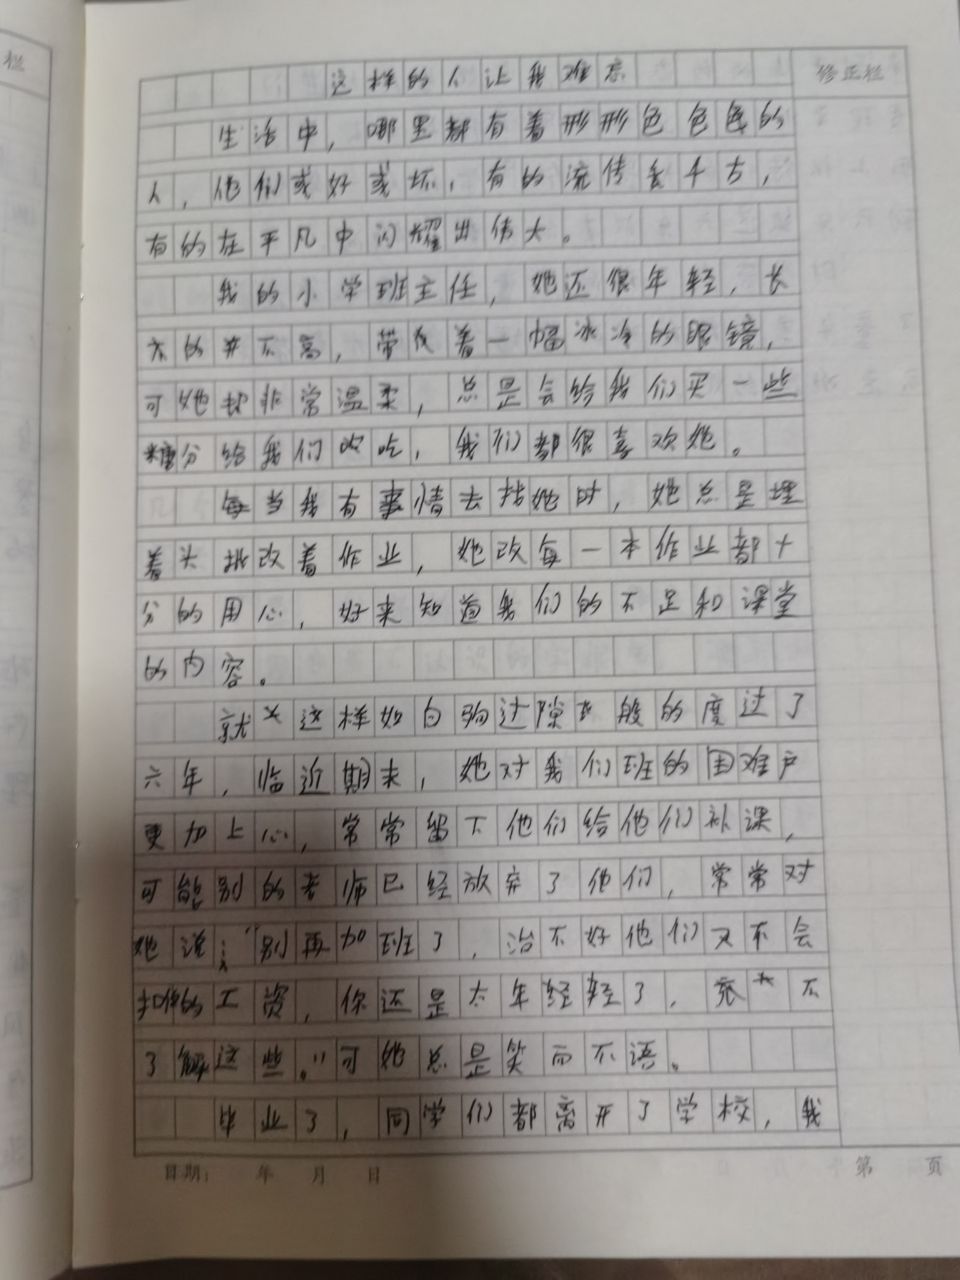 栏
这样的人让我难忘
修正栏
生活中，哪里都有着形形色色色的
人，他们或好或坏，有的流传千古，
有的在平凡中闪耀出伟大。
我的小学班主任，她还很年轻，长
的并不高，带着一幅冰冷的眼镜，
可她却非常温柔，总是会给我们买一些
糖分给我们吃，我们都很喜欢她。
每当我有事情去找她时，她总是埋
着头批改着作业，她改每一本作业都十
分的用心，好来知道我们的不足和课堂
的内容。
就这样如白驹过隙般的度过了
六年，临近期末，她对我们班的困难户
更加上心，常常留下他们给他们补课，
可能别的老师已经放弃了他们，常常对
她说："别再加班了，治不好他们又不会
扣你的工资，你还是太年轻了，不
了解这些。"可她总是笑而不语。
毕业了，同学们都离开了学校，我
日期： 年 月 日
第 页